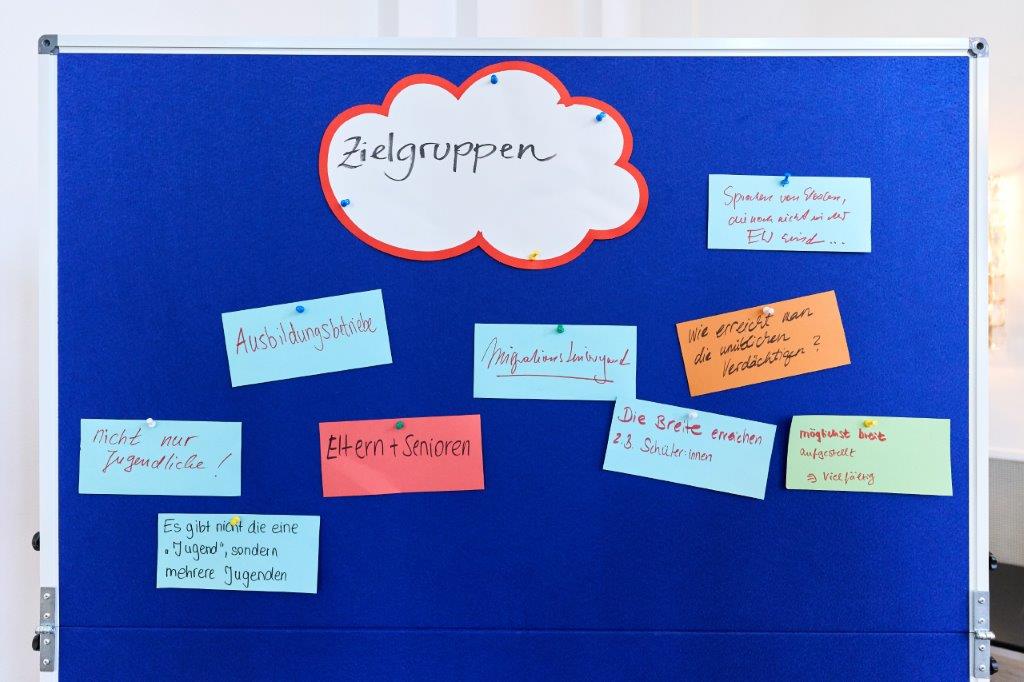 Zielgruppen
Sprachen von Staaten,
die noch nicht in der
EU sind ...
Ausbildungsbetriebe
Migrationshintergrund
Wie erreicht man
die unüblichen
Verdächtigen?
nicht nur
Jugendliche!
Eltern + Senioren
Die Breite erreichen
z.B. Schüler:innen
möglichst breit
aufgestellt
⇒ Vielfältig
Es gibt nicht die eine
„Jugend“, sondern
mehrere Jugenden